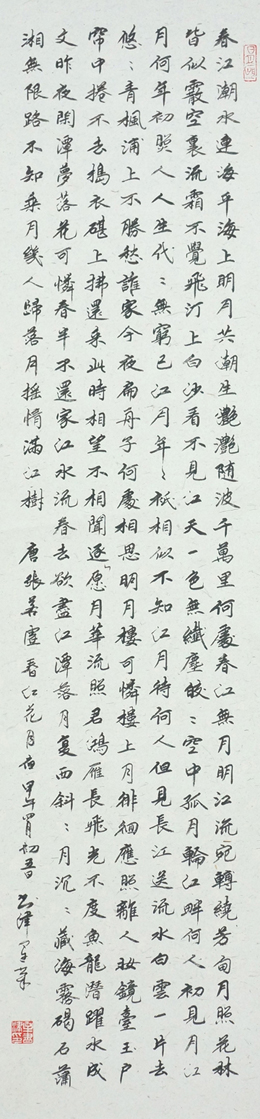 春江潮水連海平海上明月共潮生灧灧随波千萬里何處春江無月明江流宛轉繞芳甸月照花林
皆似霰空裏流霜不覺飛汀上白沙看不見江天一色無纖塵皎〻空中孤月輪江畔何人初見月江
月何年初照人人生代〻無窮已江月年〻祇相似不知江月待何人但見長江送流水白雲一片去
悠〻青楓浦上不勝愁誰家今夜扁舟子何處相思明月樓可憐樓上月徘徊應照離人妝鏡臺玉户
帘中捲不去搗衣砧上拂還来此時相望不相聞逐願月華流照君鴻雁長飛光不度魚龍潛躍水成
文昨夜閑潭夢落花可憐春半不還家江水流春去欲盡江潭落月复西斜〻月沉〻藏海霧碣石瀟
湘無限路不知乘月幾人歸落月摇情滿江樹 唐張若虛春江花月夜甲午